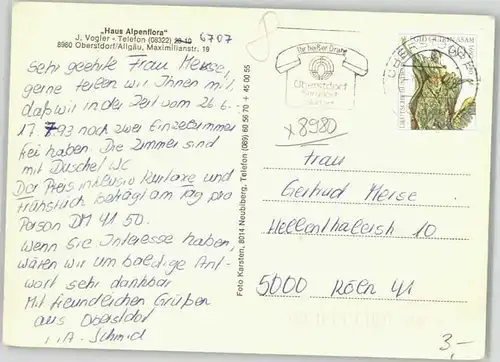 „Haus Alpenflora“
J. Vogler - Telefon (08322) 6707
8980 Oberstdorf/Allgäu, Maximilianstr. 19
Sehr geehrte Frau Meise,
gerne teilen wir Ihnen mit,
daß wir in der Zeit vom 26.6.
17.7.93 noch zwei Einzelzimmer
frei haben. Die Zimmer sind
mit Dusche/WC
Der Preis inklusiv Kurtaxe und
Frühstück beträgt am Tag pro
Person DM 41.50.
Wenn Sie Interesse haben,
wären wir um baldige Ant-
wort sehr dankbar
Mit freundlichen Grüßen
aus Oberstdorf
i.A. Schmid
Foto Karsten, 8014 Neubiberg, Telefon (089) 60 56 70 + 45 00 55
8
Ihr heißer Draht
Oberstdorf
x 8980
OBERSTDORF
COSMAS DAMIAN ASAM
60
Frau
Gertrud Meise
Hellenthalerstr. 10
5000 Köln 41
3-